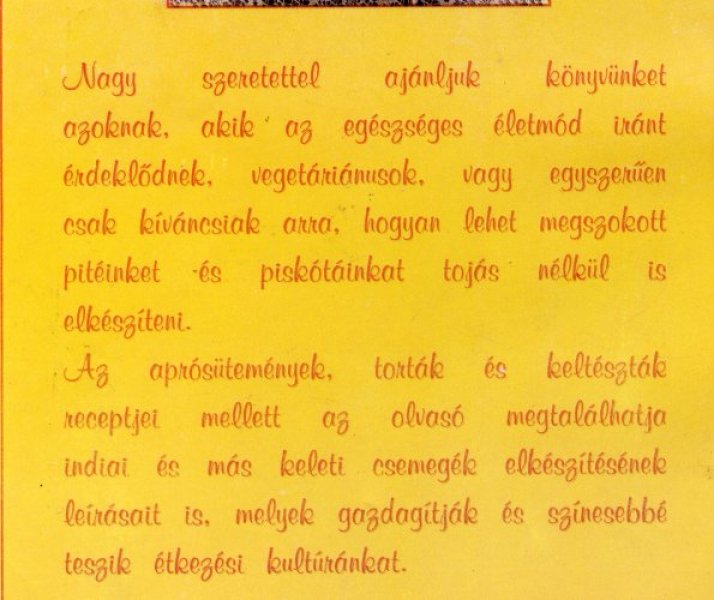 Nagy szeretettel ajánljuk könyvünket
azoknak, akik az egészséges életmód iránt
érdeklődnek, vegetáriánusok, vagy egyszerűen
csak kíváncsiak arra, hogyan lehet megszokott
pitéinket és piskótáinkat tojás nélkül is
elkészíteni.
Az aprósütemények, torták és keltészták
receptjei mellett az olvasó megtalálhatja
indiai és más keleti csemegék elkészítésének
leírásait is, melyek gazdagítják és színesebbé
teszik étkezési kultúránkat.